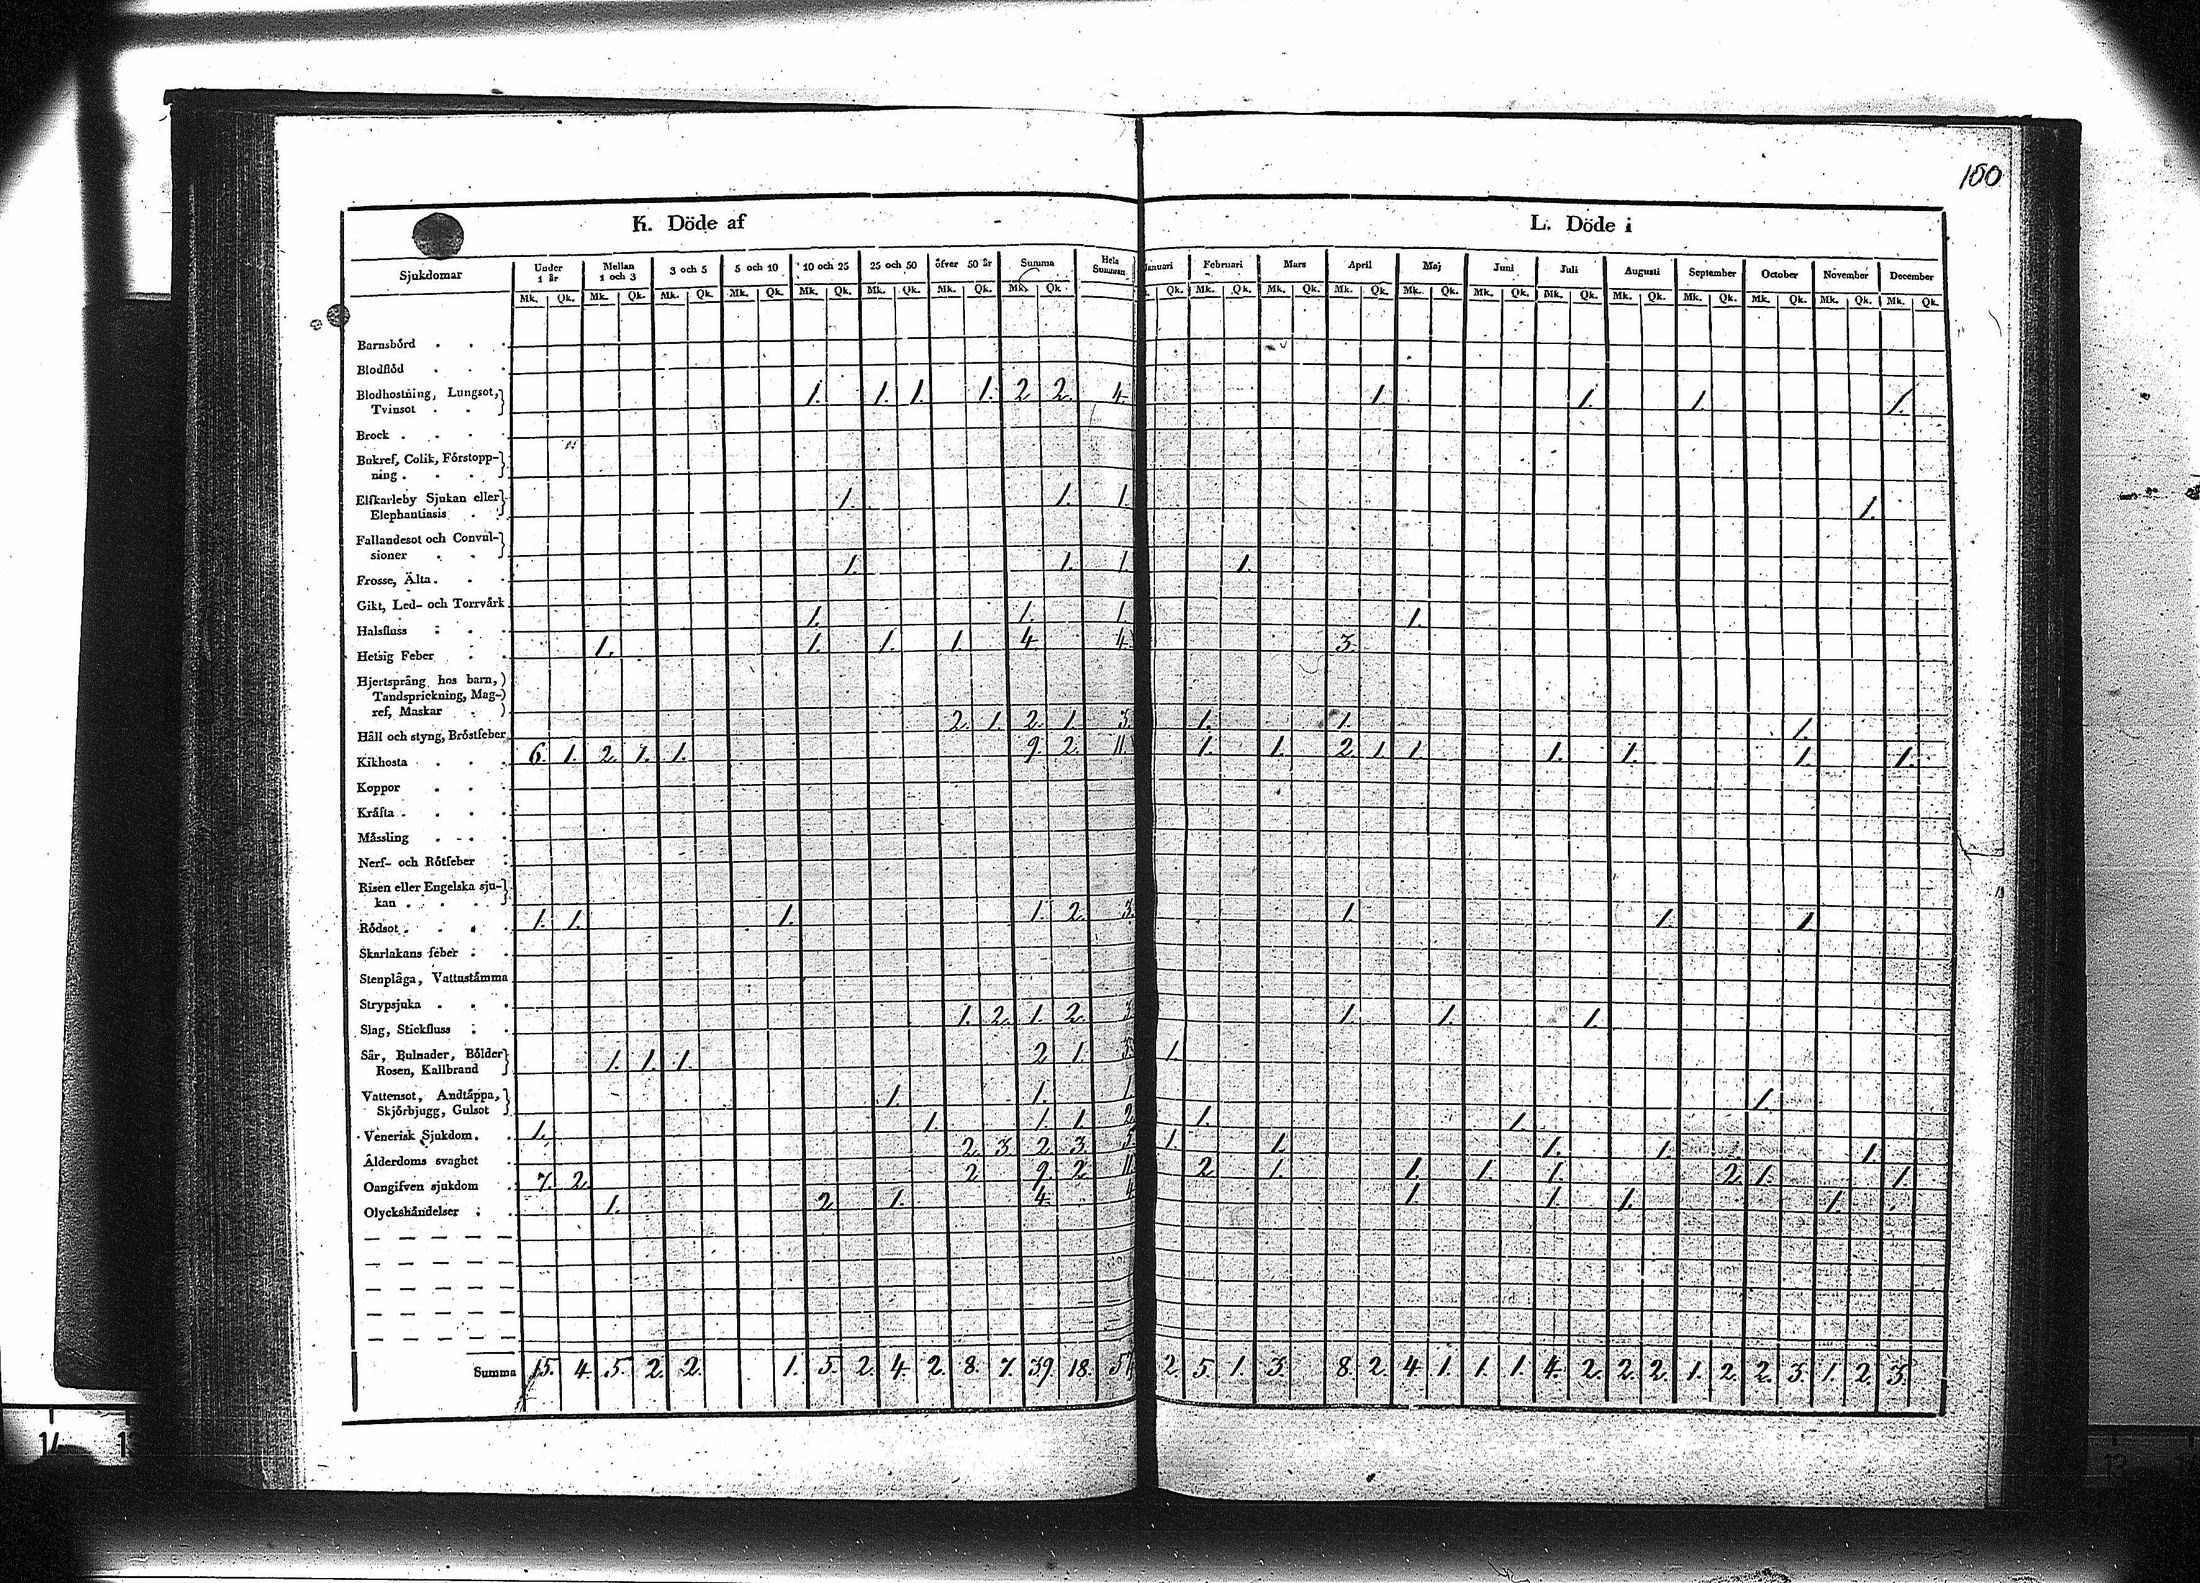 150
K. Döde af
L. Döde i
Sjukdomar Under 1 år Mellan 1 och 3 3 och 5 5 och 10 10 och 25 25 och 50 öfver 50 år Summa Hela Summan Februari Mars April Maj Juni Juli Augusti September October November December
Mk. Qk. Mk. Qk. Mk. Qk. Mk. Qk. Mk. Qk. Mk. Qk. Mk. Qk. Mk. Qk. Qk. Mk. Qk. Mk. Qk. Mk. Qk. Mk. Qk. Mk. Qk. Mk. Qk. Mk. Qk. Mk. Qk. Mk. Qk. Mk. Qk. Mk. Qk.
Barnsbörd
Blodflöd
Blodhostning, Lungsot, 1. 1. 1. 1. 2 2. 4. 1. 1. 1. 1.
Tvinsot
Brock
Bukref, Colik, Förstopp-
ning
Elfkarleby Sjukan eller 1. 1. 1. 1.
Elephantiasis
Fallandesot och Convul-
sioner 1. 1. 1. 1.
Frosse, Älta
Gikt, Led- och Torrvärk
1. 1. 1. 1.
Halsfluss
1. 1. 1. 1. 4. 4. 3.
Hetsig Feber
Hjertsprång hos barn,
Tandsprickning, Mag-
ref, Maskar
2. 1. 2. 1. 3. 1. 1. 1.
Håll och styng, Bröstfeber
6. 1. 2. 1. 1. 9. 2. 11. 1. 1. 2. 1. 1. 1. 1. 1. 1.
Kikhosta
Koppor
Kräfta
Mässling
Nerf- och Rötfeber
Risen eller Engelska sju-
kan
1. 1. 1. 1. 2. 3. 1. 1. 1.
Rödsot
Skarlakans feber
Stenplåga, Vattustämma
Strypsjuka
1. 2. 1. 2. 3. 1. 1. 1.
Slag, Stickfluss
Sår, Bulnader, Bölder 1. 1. 1. 2 1. 3. 1.
Rosen, Kallbrand
Vattensot, Andtäppa, 1. 1. 1. 1.
Skjörbjugg, Gulsot
1. 1. 1. 1. 2. 1. 1.
Venerisk Sjukdom
2. 3. 2. 3. 5. 1. 1. 1. 1. 1.
Ålderdoms svaghet
7. 2. 2 9. 2. 11. 2. 1. 1. 1. 1. 2. 1. 1.
Oangifven sjukdom
1. 2 1. 4. 4. 1. 1. 1. 1.
Olyckshändelser
Summa 15. 4. 5. 2. 2. 1. 5. 2. 4. 2. 8. 7. 39. 18. 57 2. 5. 1. 3. 8. 2. 4. 1. 1. 1. 4. 2. 2. 2. 1. 2. 2. 3. 1. 2. 3.
14
13